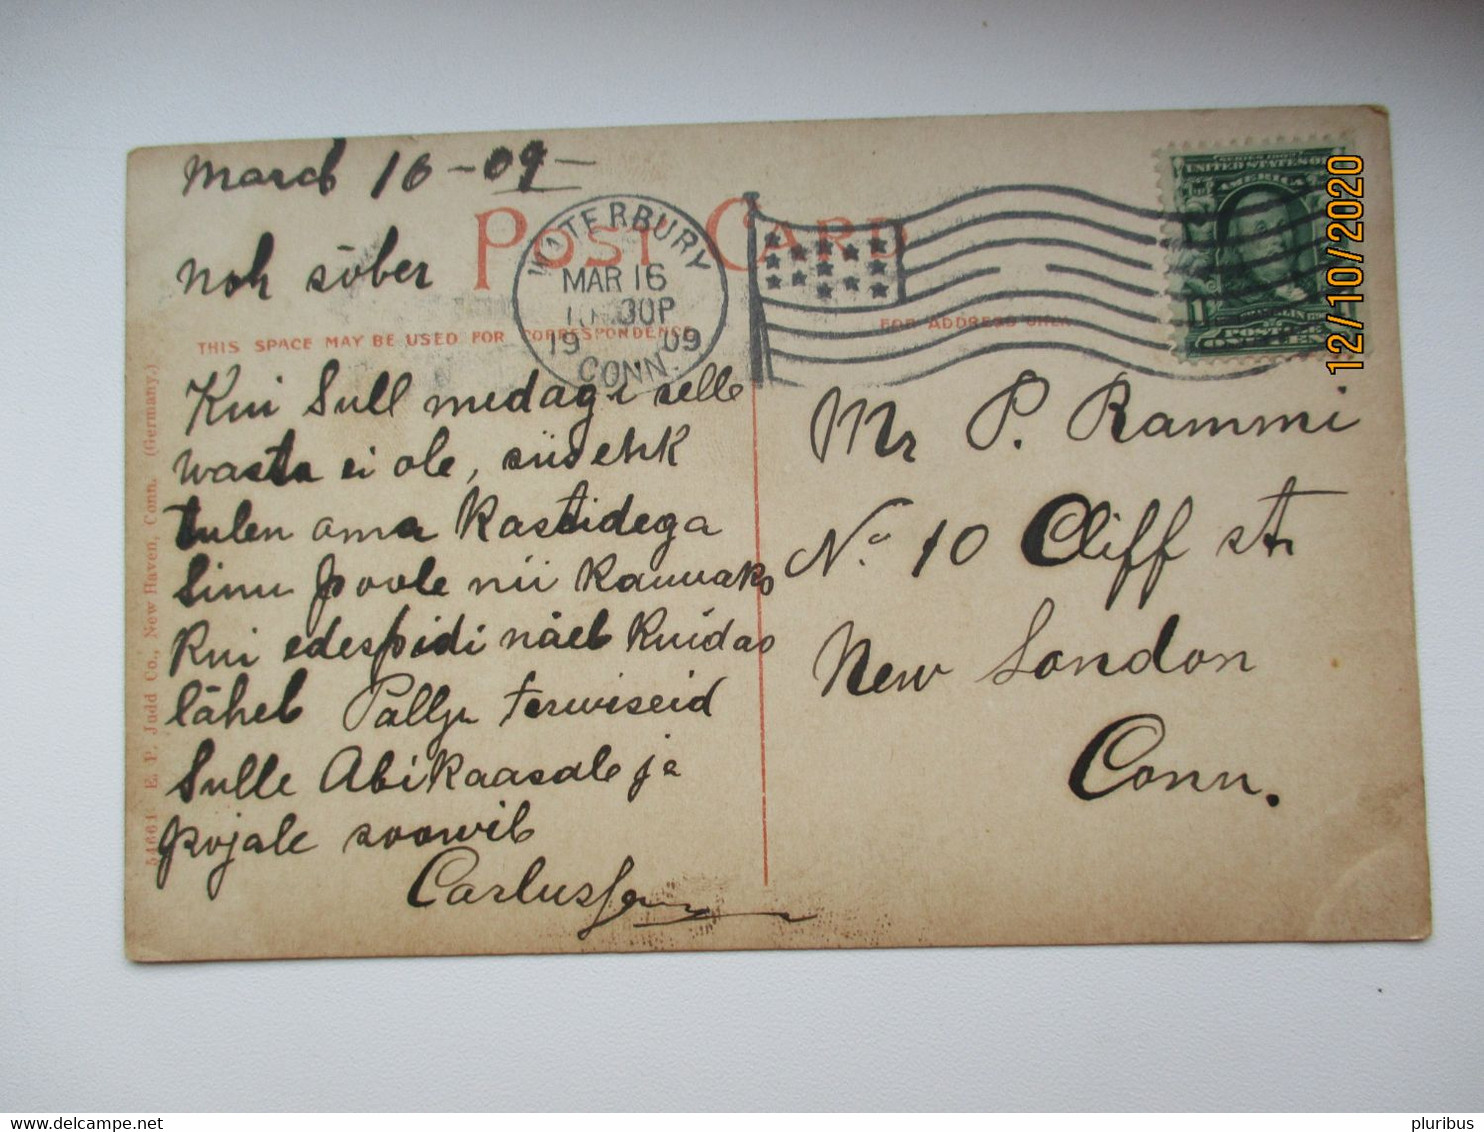 March 16-09-
POST CARD
noh sõber
WATERBURY
MAR 16
30P
1909
CONN.
THIS SPACE MAY BE USED FOR CORRESPONDENCE
FOR ADDRESS ONLY
SERIES 1902
UNITED STATES OF
AMERICA
1
FRANKLIN
POSTAGE
ONE CENT
12/10/2020
Kui Sull medagi selle
wasta ei ole, siis ehk
tulen oma kastidega
Sinu poole nii kauuaks
kui edespidi näeb kuidas
läheb Pallju terwiseid
Sulle Abikaasale ja
pojale soowib
Carlus
Mr P. Rammi
No. 10 Cliff st
New London
Conn.
54661 E. P. Judd Co., New Haven, Conn. (Germany.)
pluribus